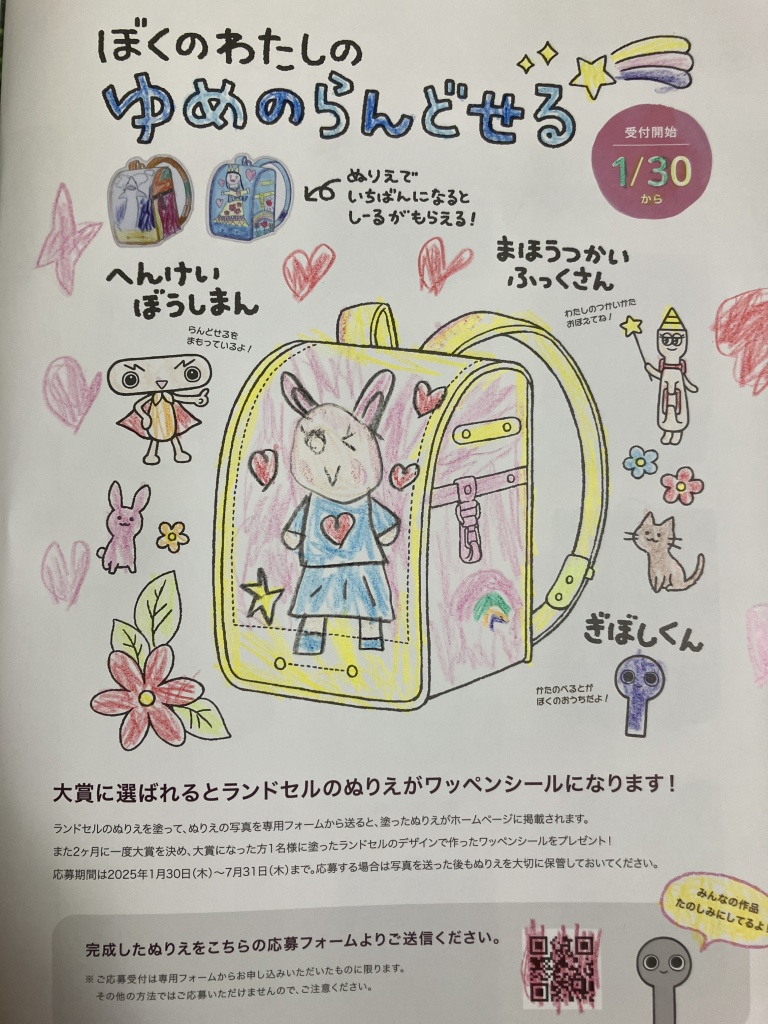 ぼくのわたしの
ゆめのらんどせる
受付開始
1/30
から
ぬりえで
いちばんになると
しーるがもらえる!
へんけい
ぼうしまん
らんどせるを
まもっているよ!
まほうつかい
ふっくさん
わたしのつかいかた
おぼえてね!
ぎぼしくん
かたのべるとが
ぼくのおうちだよ!
大賞に選ばれるとランドセルのぬりえがワッペンシールになります!
ランドセルのぬりえを塗って、ぬりえの写真を専用フォームから送ると、塗ったぬりえがホームページに掲載されます。
また2ヶ月に一度大賞を決め、大賞になった方1名様に塗ったランドセルのデザインで作ったワッペンシールをプレゼント!
応募期間は2025年1月30日(木)〜7月31日(木)まで。応募する場合は写真を送った後もぬりえを大切に保管しておいてください。
みんなの作品
たのしみにしてるよ!
完成したぬりえをこちらの応募フォームよりご送信ください。
※ご応募受付は専用フォームからお申し込みいただいたものに限ります。
その他の方法ではご応募いただけませんので、ご注意ください。